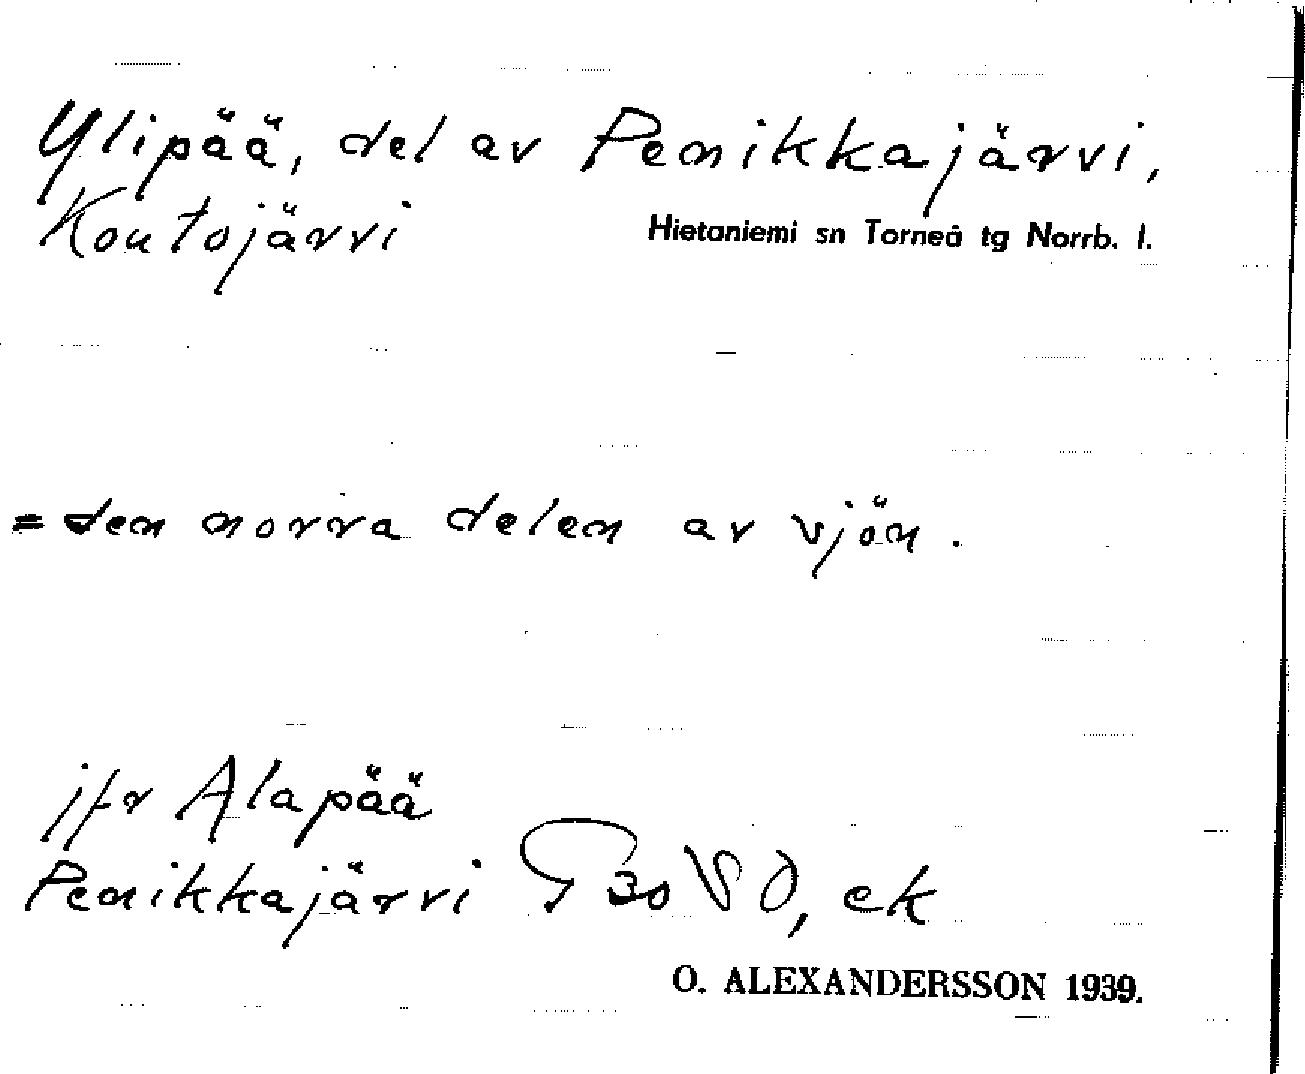 Ylipää, del av Penikkajärvi,
Koutojärvi Hietaniemi sn Torneå tg Norrb. l.
= den norra delen av sjön.
jfr Alapää
Penikkajärvi G 30 SO, ek
O. ALEXANDERSSON 1939.